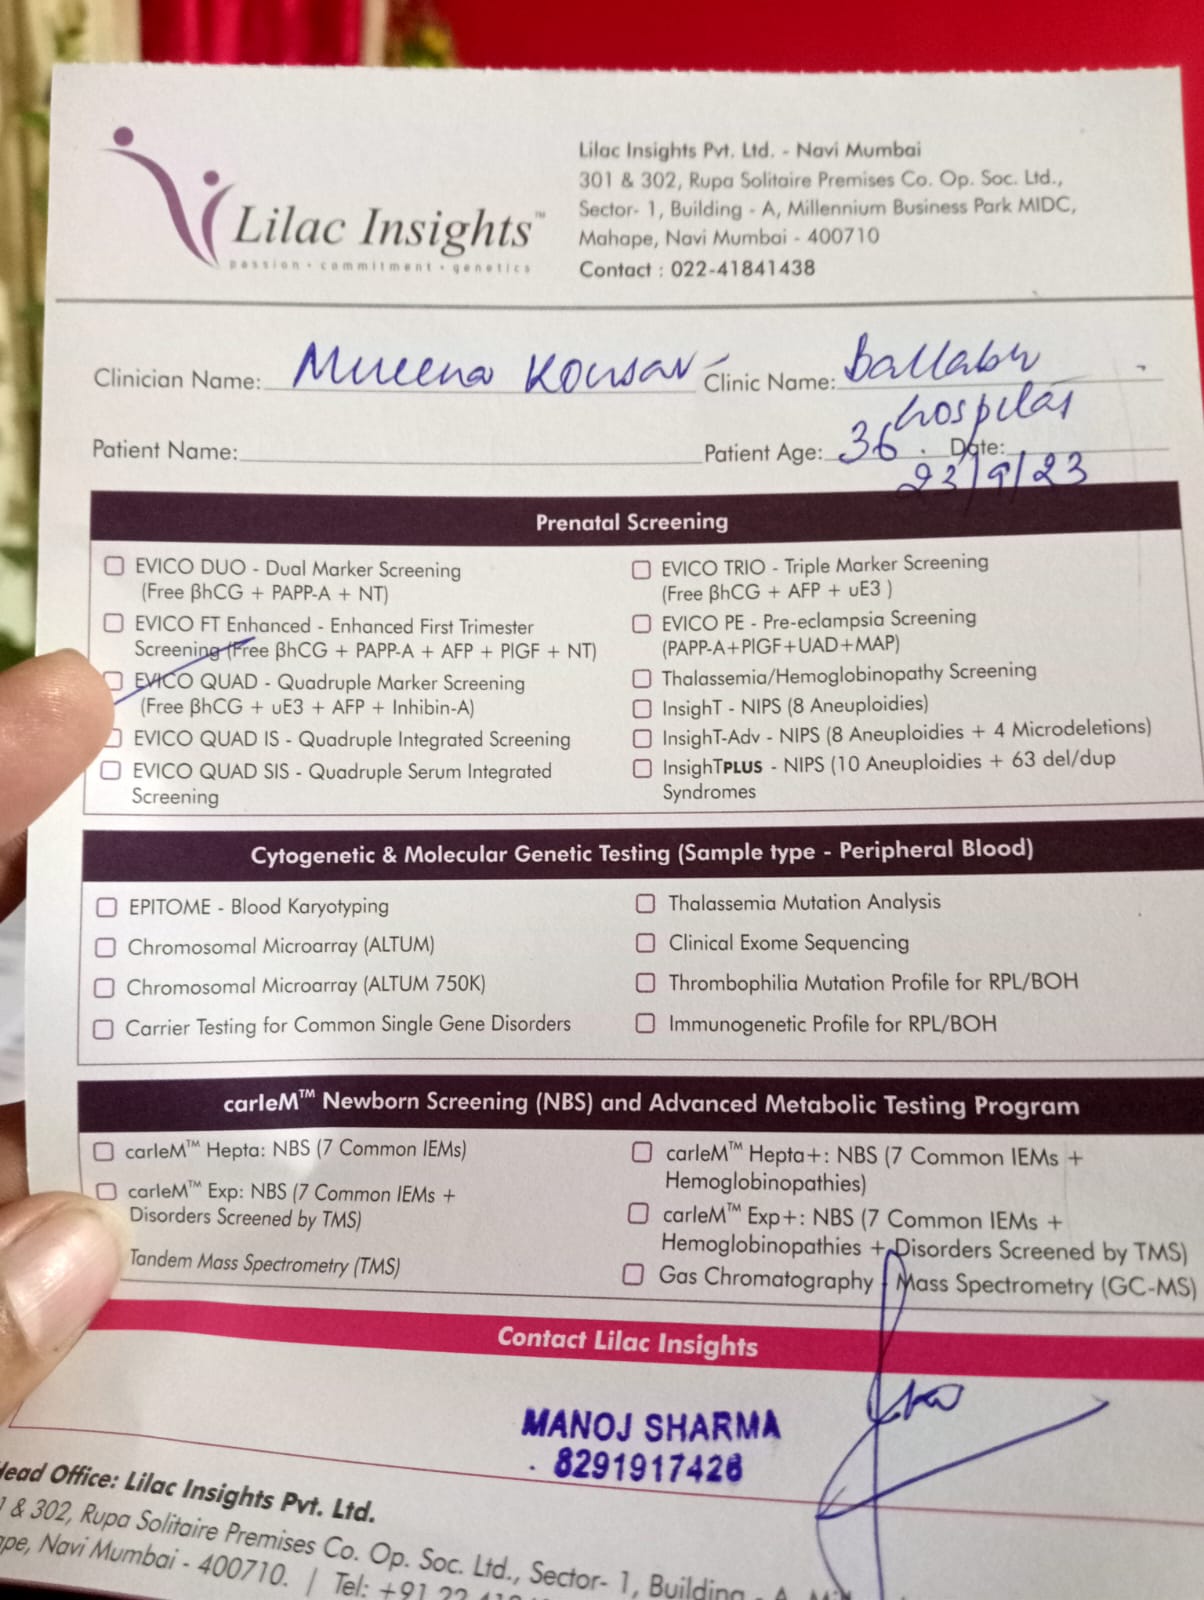 Lilac Insights™
passion • commitment • genetics
Lilac Insights Pvt. Ltd. - Navi Mumbai
301 & 302, Rupa Solitaire Premises Co. Op. Soc. Ltd.,
Sector- 1, Building - A, Millennium Business Park MIDC,
Mahape, Navi Mumbai - 400710
Contact : 022-41841438
Clinician Name: Mueena Kousar Clinic Name: Ballabh
hospital
Patient Name: Patient Age: 36 . Date:
23/9/23
Prenatal Screening
EVICO DUO - Dual Marker Screening
(Free βhCG + PAPP-A + NT)
EVICO FT Enhanced - Enhanced First Trimester
Screening (Free βhCG + PAPP-A + AFP + PlGF + NT)
EVICO QUAD - Quadruple Marker Screening
(Free βhCG + uE3 + AFP + Inhibin-A)
EVICO QUAD IS - Quadruple Integrated Screening
EVICO QUAD SIS - Quadruple Serum Integrated
Screening
EVICO TRIO - Triple Marker Screening
(Free βhCG + AFP + uE3 )
EVICO PE - Pre-eclampsia Screening
(PAPP-A+PlGF+UAD+MAP)
Thalassemia/Hemoglobinopathy Screening
InsighT - NIPS (8 Aneuploidies)
InsighT-Adv - NIPS (8 Aneuploidies + 4 Microdeletions)
InsighTPLUS - NIPS (10 Aneuploidies + 63 del/dup
Syndromes
Cytogenetic & Molecular Genetic Testing (Sample type - Peripheral Blood)
EPITOME - Blood Karyotyping
Chromosomal Microarray (ALTUM)
Chromosomal Microarray (ALTUM 750K)
Carrier Testing for Common Single Gene Disorders
Thalassemia Mutation Analysis
Clinical Exome Sequencing
Thrombophilia Mutation Profile for RPL/BOH
Immunogenetic Profile for RPL/BOH
carleM™ Newborn Screening (NBS) and Advanced Metabolic Testing Program
carleM™ Hepta: NBS (7 Common IEMs)
carleM™ Exp: NBS (7 Common IEMs +
Disorders Screened by TMS)
Tandem Mass Spectrometry (TMS)
carleM™ Hepta+: NBS (7 Common IEMs +
Hemoglobinopathies)
carleM™ Exp+: NBS (7 Common IEMs +
Hemoglobinopathies + Disorders Screened by TMS)
Gas Chromatography - Mass Spectrometry (GC-MS)
Contact Lilac Insights
MANOJ SHARMA
8291917426
Head Office: Lilac Insights Pvt. Ltd.
& 302, Rupa Solitaire Premises Co. Op. Soc. Ltd., Sector- 1, Building - A,
Navi Mumbai - 400710. | Tel: +91 22